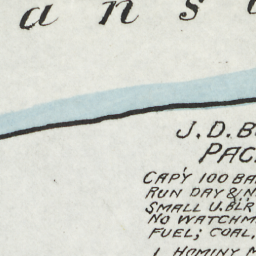 a n s
J. D. B
PAC
CAP'Y 100 BA
RUN DAY & N
SMALL U. BL'R
NO WATCHM
FUEL; COAL,
1 HOMINY M